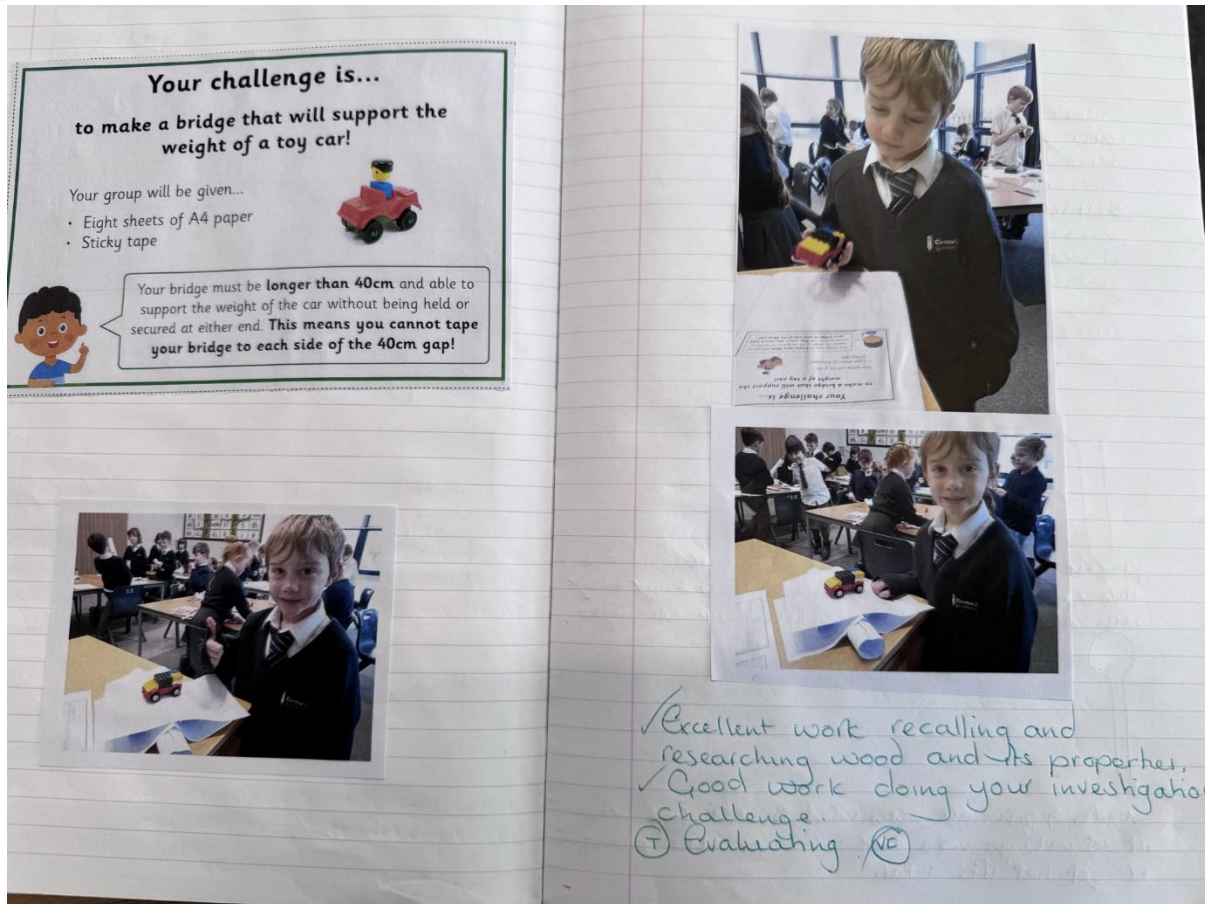 Your challenge is...
to make a bridge that will support the
weight of a toy car!
Your group will be given...
• Eight sheets of A4 paper
• Sticky tape
Your bridge must be longer than 40cm and able to
support the weight of the car without being held or
secured at either end. This means you cannot tape
your bridge to each side of the 40cm gap!
Your challenge is...
to make a bridge that will support the
weight of a toy car!
✓ Excellent work recalling and
researching wood and its properties.
✓ Good work doing your investigation
challenge.
T Evaluating. VF